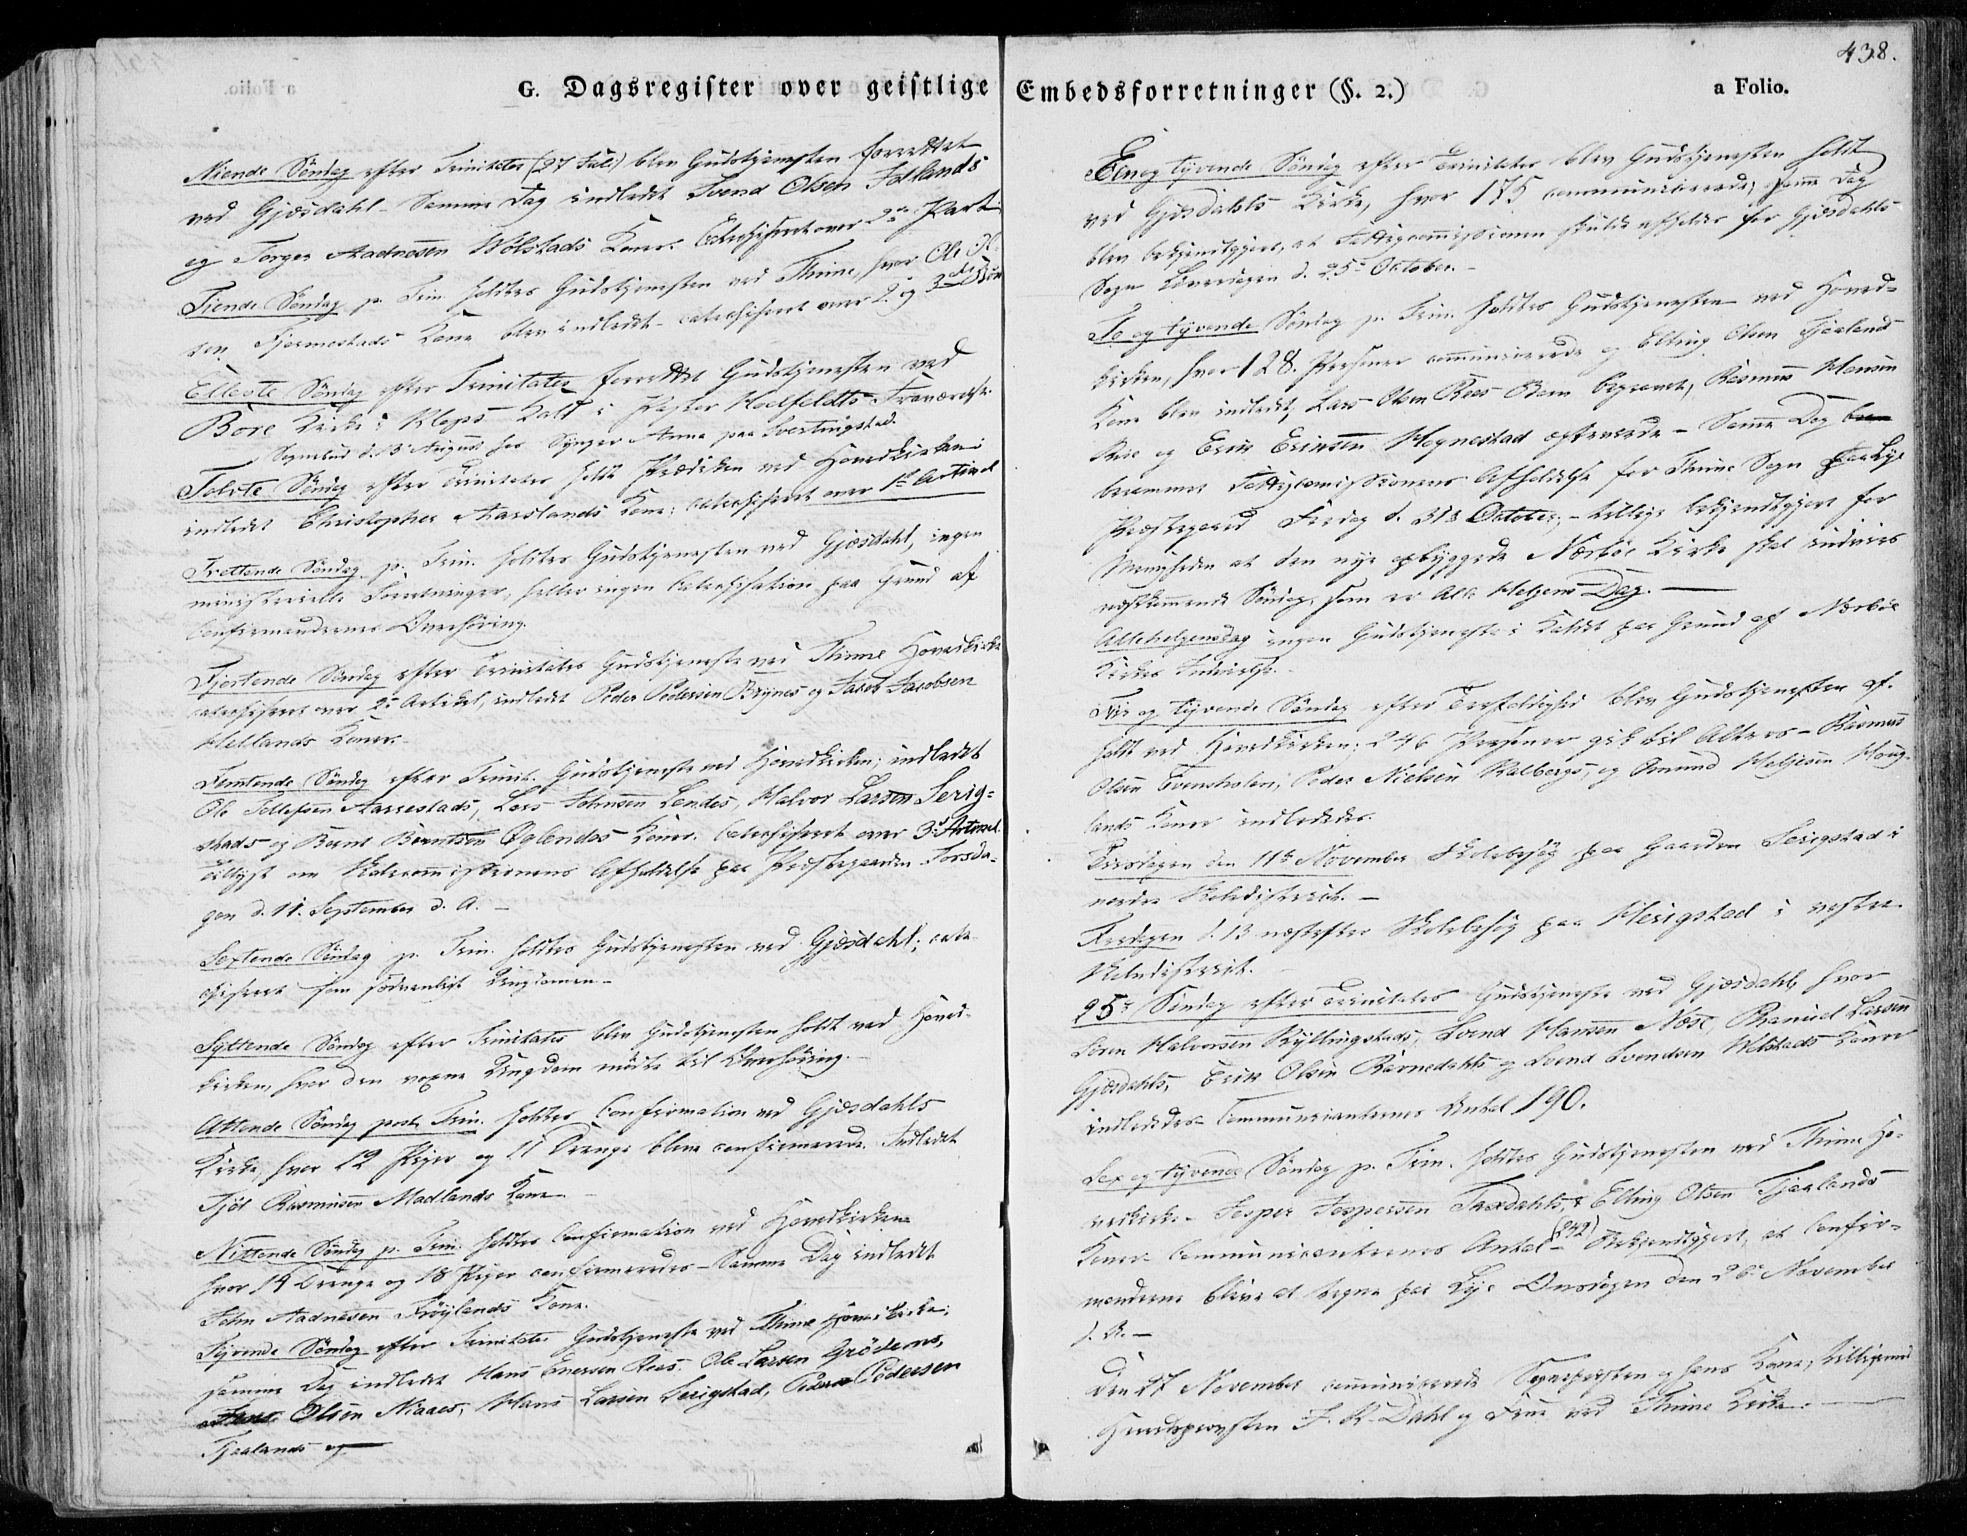 438.
G. Dagsregister over geistlige Embedsforretninger (§. 2.)
a Folio.
Niende Søndag efter Trinitatis (27 Juli) blev Gudstjenesten forrettet
ved Gjæsdahl - Samme Dag indledet Svend Olsen Fotlands
og Torger Aadnesen Wølstads Koner. Catechiseret over 2den Part
Tiende Søndag p. Trin. holdtes Gudstjenesten ved Thime, hvor Ole Ol-
sen Tjermestads Kone blev indledet - catechiseret over 2. og 3die Bøn
Ellevte Søndag efter Trinitatis forrettet Gudstjenesten ved
Bore Kirke i Klepps Kald i Pastor Fraværelse
Sognebud d. 5 August hos Anna paa Svertingstad.
Tolvte Søndag efter Trinitatis holdt Prædiken ved Hovedkirken
indledet Christopher Aarslands Kone; catechiseret over 1ste Artikel
Trettende Søndag p. Trin. holdtes Gudstjenesten ved Gjæsdahl, ingen
ministerielle Forretninger, heller ingen Catechisation paa Grund af
Confirmandernes Overhøring.
Fjortende Søndag efter Trinitatis Gudstjeneste ved Thime Hovedkirke
catechiseret over 2d Artikel, indledet Peder Pedersen Brynes og Jacob Jacobsen
Hellands Koner.
Femtende Søndag efter Trinit. Gudstjeneste ved Hovedkirken; indledet
Ole Tollefsen Aarrestads, Lars Johnsen Lendes, Halvor Larsen Serig-
stads og Bernt Berntsen Øglendes Koner. Catechiseret over 3d Artikel.
Tillyst om Skolecommissionens Afholdelse paa Præstegaarden Torsda-
gen d. 11. September d. A. -
Sextende Søndag p. Trin. holdtes Gudstjenesten ved Gjæsdahl; cate-
chiseret som sædvanligt Ungdommen -
Syttende Søndag efter Trinitatis blev Gudstjenesten holdt ved Hoved-
kirken, hvor den voxne Ungdom mødte til Overhøring. -
Attende Søndag post Trin. holdtes Confirmation ved Gjæsdahls
Kirke, hvor 12 Piger og 11 Drenge bleve confirmerede. Indledet
Tjøl Rasmusen Madlands Kone. -
Nittende Søndag p. Trin. holdtes Confirmation ved Hovedkirken
hvor 14 Drenge og 18 Piger confirmeredes - Samme Dag indledet
John Aadnesen Frøylands Kone.
Tyvende Søndag efter Trinitatis Gudstjeneste ved Thime Hovedkirke;
samme Dag indledet Hans Enersen Rees. Ole Larsen Grødems,
Olsen Niaaes, Hans Larsen Serigstad, Peder Pedersen
Tjaalands og
Een og tyvende Søndag efter Trinitatis blev Gudstjenesten holdt
ved Gjæsdahls Kirke, hvor 175 communicerede; samme Dag
blev bekjendtgjort, at Fattigcommissionen skulde afholdes for Gjæsdahls
Sogn Løverdagen d. 25de October. -
To og tyvende Søndag p. Trin. holdtes Gudstjenesten ved Hoved-
kirken, hvor 128. Personer communicerede og Elling Olsen Tjaalands
Kone blev indledet, Lars Olsen Rees Barn begravet, Rasmus Hansen
Rise og Erik Eriksen Høgnestad - Samme Dag
berammet Fattigcommissionens Afholdelse for Thime Sogn paa Lye
Præstegaard Fredag d. 31d October; - tillige bekjendtgjort for
Menigheden at den nye opbyggede Nærbøe Kirke skal indvies
næstkommende Søndag, som er Alle Helgens Dag. -
Allehelgensdag ingen Gudstjeneste i Kaldet paa Grund af Nærbøe
Kirkes Indvielse. -
Fire og tyvende Søndag efter Trefoldighed blev Gudstjenesten af-
holdt ved Hovedkirken; 246 Personer gik til Alters - Rasmus
Olsen Peder Nielsen Kalbergs, og Omund Helgesen Houg-
lands Koner indlededes.
Tirsdagen den 11te November Skolebesøg paa Gaarden Serigstad i
nordre Skoledistrict. -
Fredagen d. 13 næstefter Skolebesøg paa Herigstad i vestre
Skoledistrict.
25de Søndag efter Trinitatis Gudstjeneste ved Gjæsdahl hvor
Søren Halvorsen Kyllingstads, Svend Hansen Næse, Rasmus Larsen
Gjæsdahls, Erik Olsen Ravnedahls og Svend Svendsen Wølstads Koner
indlededes - Communicanternes Antal 190.
Sex og tyvende Søndag p. Trin. holdtes Gudstjenesten ved Thime Ho-
vedkirke - Jesper Jespersen Taxdahls, & Elling Olsen Tjaalands
Koner. Communicanternes Antal (242) - Bekjendtgjort, at Confir-
manderne bleve at tegne paa Lye Onsdagen den 26de November
d. A. -
Den 27 November communicerede Sognepresten og hans Kone, tilligemed
F. K. Dahl og Frue ved Thime Kirke. -